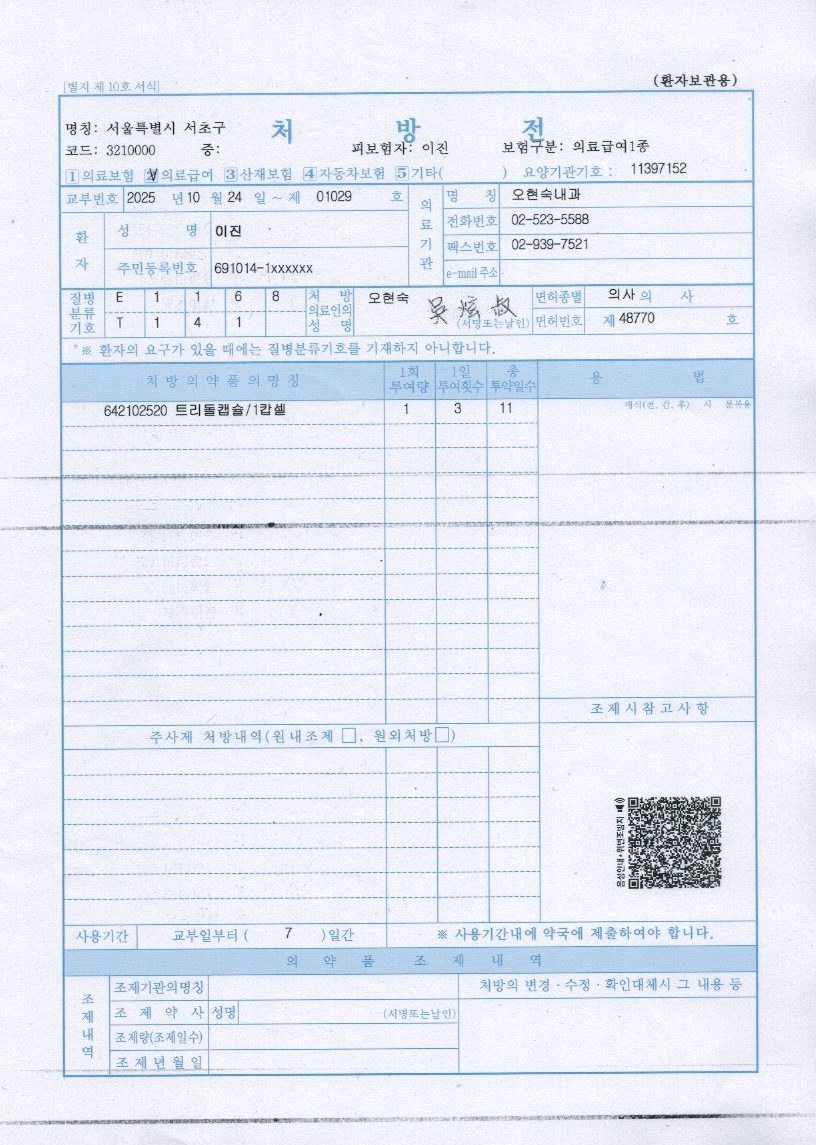 [별지 제10호 서식]
(환자보관용)
처 방 전
명칭: 서울특별시 서초구
코드: 3210000 증: 피보험자: 이진 보험구분: 의료급여1종
1 의료보험 2 의료급여 3 산재보험 4 자동차보험 5 기타( ) 요양기관기호 : 11397152
교부번호 2025 년 10 월 24 일 ~ 제 01029 호
의료기관
명 칭 오현숙내과
전화번호 02-523-5588
팩스번호 02-939-7521
e-mail 주소
환자
성 명 이진
주민등록번호 691014-1xxxxxx
질병분류기호
E 1 1 6 8
T 1 4 1
처 방 의료인의 성 명
오현숙
吳炫叔
(서명또는날인)
면허종별 의사 의 사
면허번호 제 48770 호
※ 환자의 요구가 있을 때에는 질병분류기호를 기재하지 아니합니다.
처 방 의 약 품 의 명 칭 1회 투여량 1일 투여횟수 총 투약일수 용 법
642102520 트리돌캡슐/1캅셀 1 3 11
매식(전, 간, 후) 시 분복용
조 제 시 참 고 사 항
주사제 처방내역(원내조제 □, 원외처방 □)
음성안내·위변조방지
사용기간 교부일부터 ( 7 )일간 ※ 사용기간내에 약국에 제출하여야 합니다.
의 약 품 조 제 내 역
조제내역
조제기관의명칭 처방의 변경 · 수정 · 확인대체시 그 내용 등
조 제 약 사 성명 (서명또는날인)
조제량(조제일수)
조 제 년 월 일